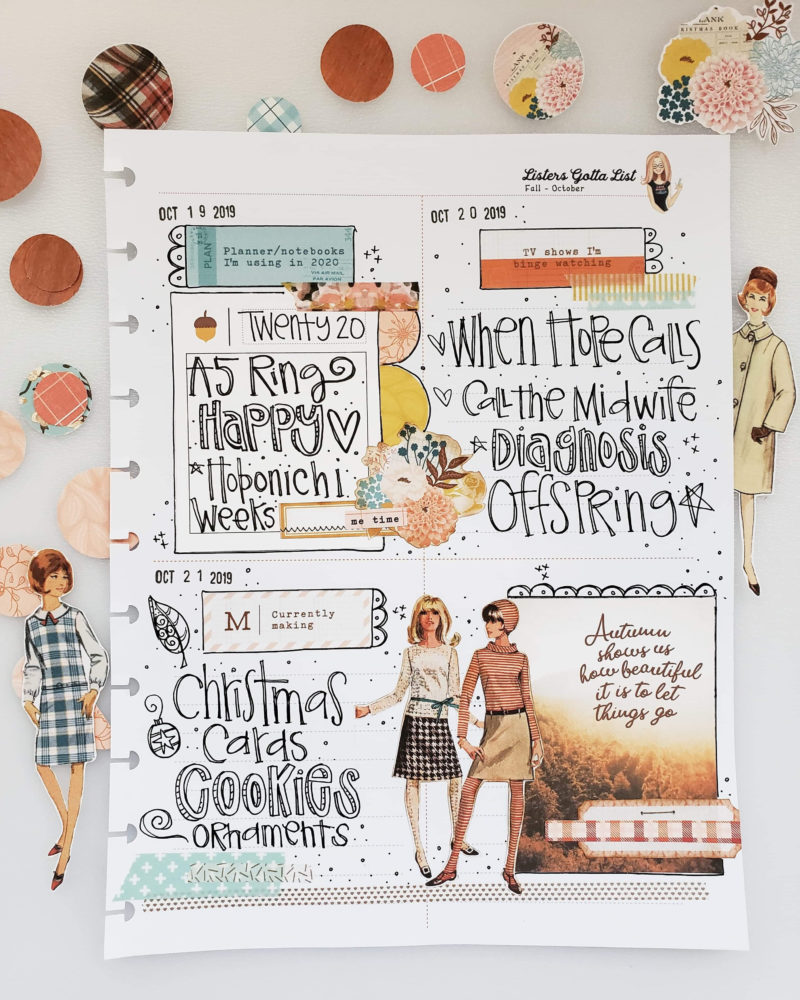 LANK
RISTMAS BOOK
LANK
ISTMAS BOOK
Listers Gotta List
Fall - October
OCT 19 2019
PLAN
Planner/notebooks
I'm using in 2020
VIA AIR MAIL
PAR AVION
Twenty 20
A5 Ring
Happy
Hobonichi
Weeks
me time
OCT 20 2019
TV shows I'm
binge watching
When Hope Calls
Call the Midwife
Diagnosis
Offspring
OCT 21 2019
M
Currently
making
Christmas
Cards
Cookies
Ornaments
Autumn
shows us
how beautiful
it is to let
things go